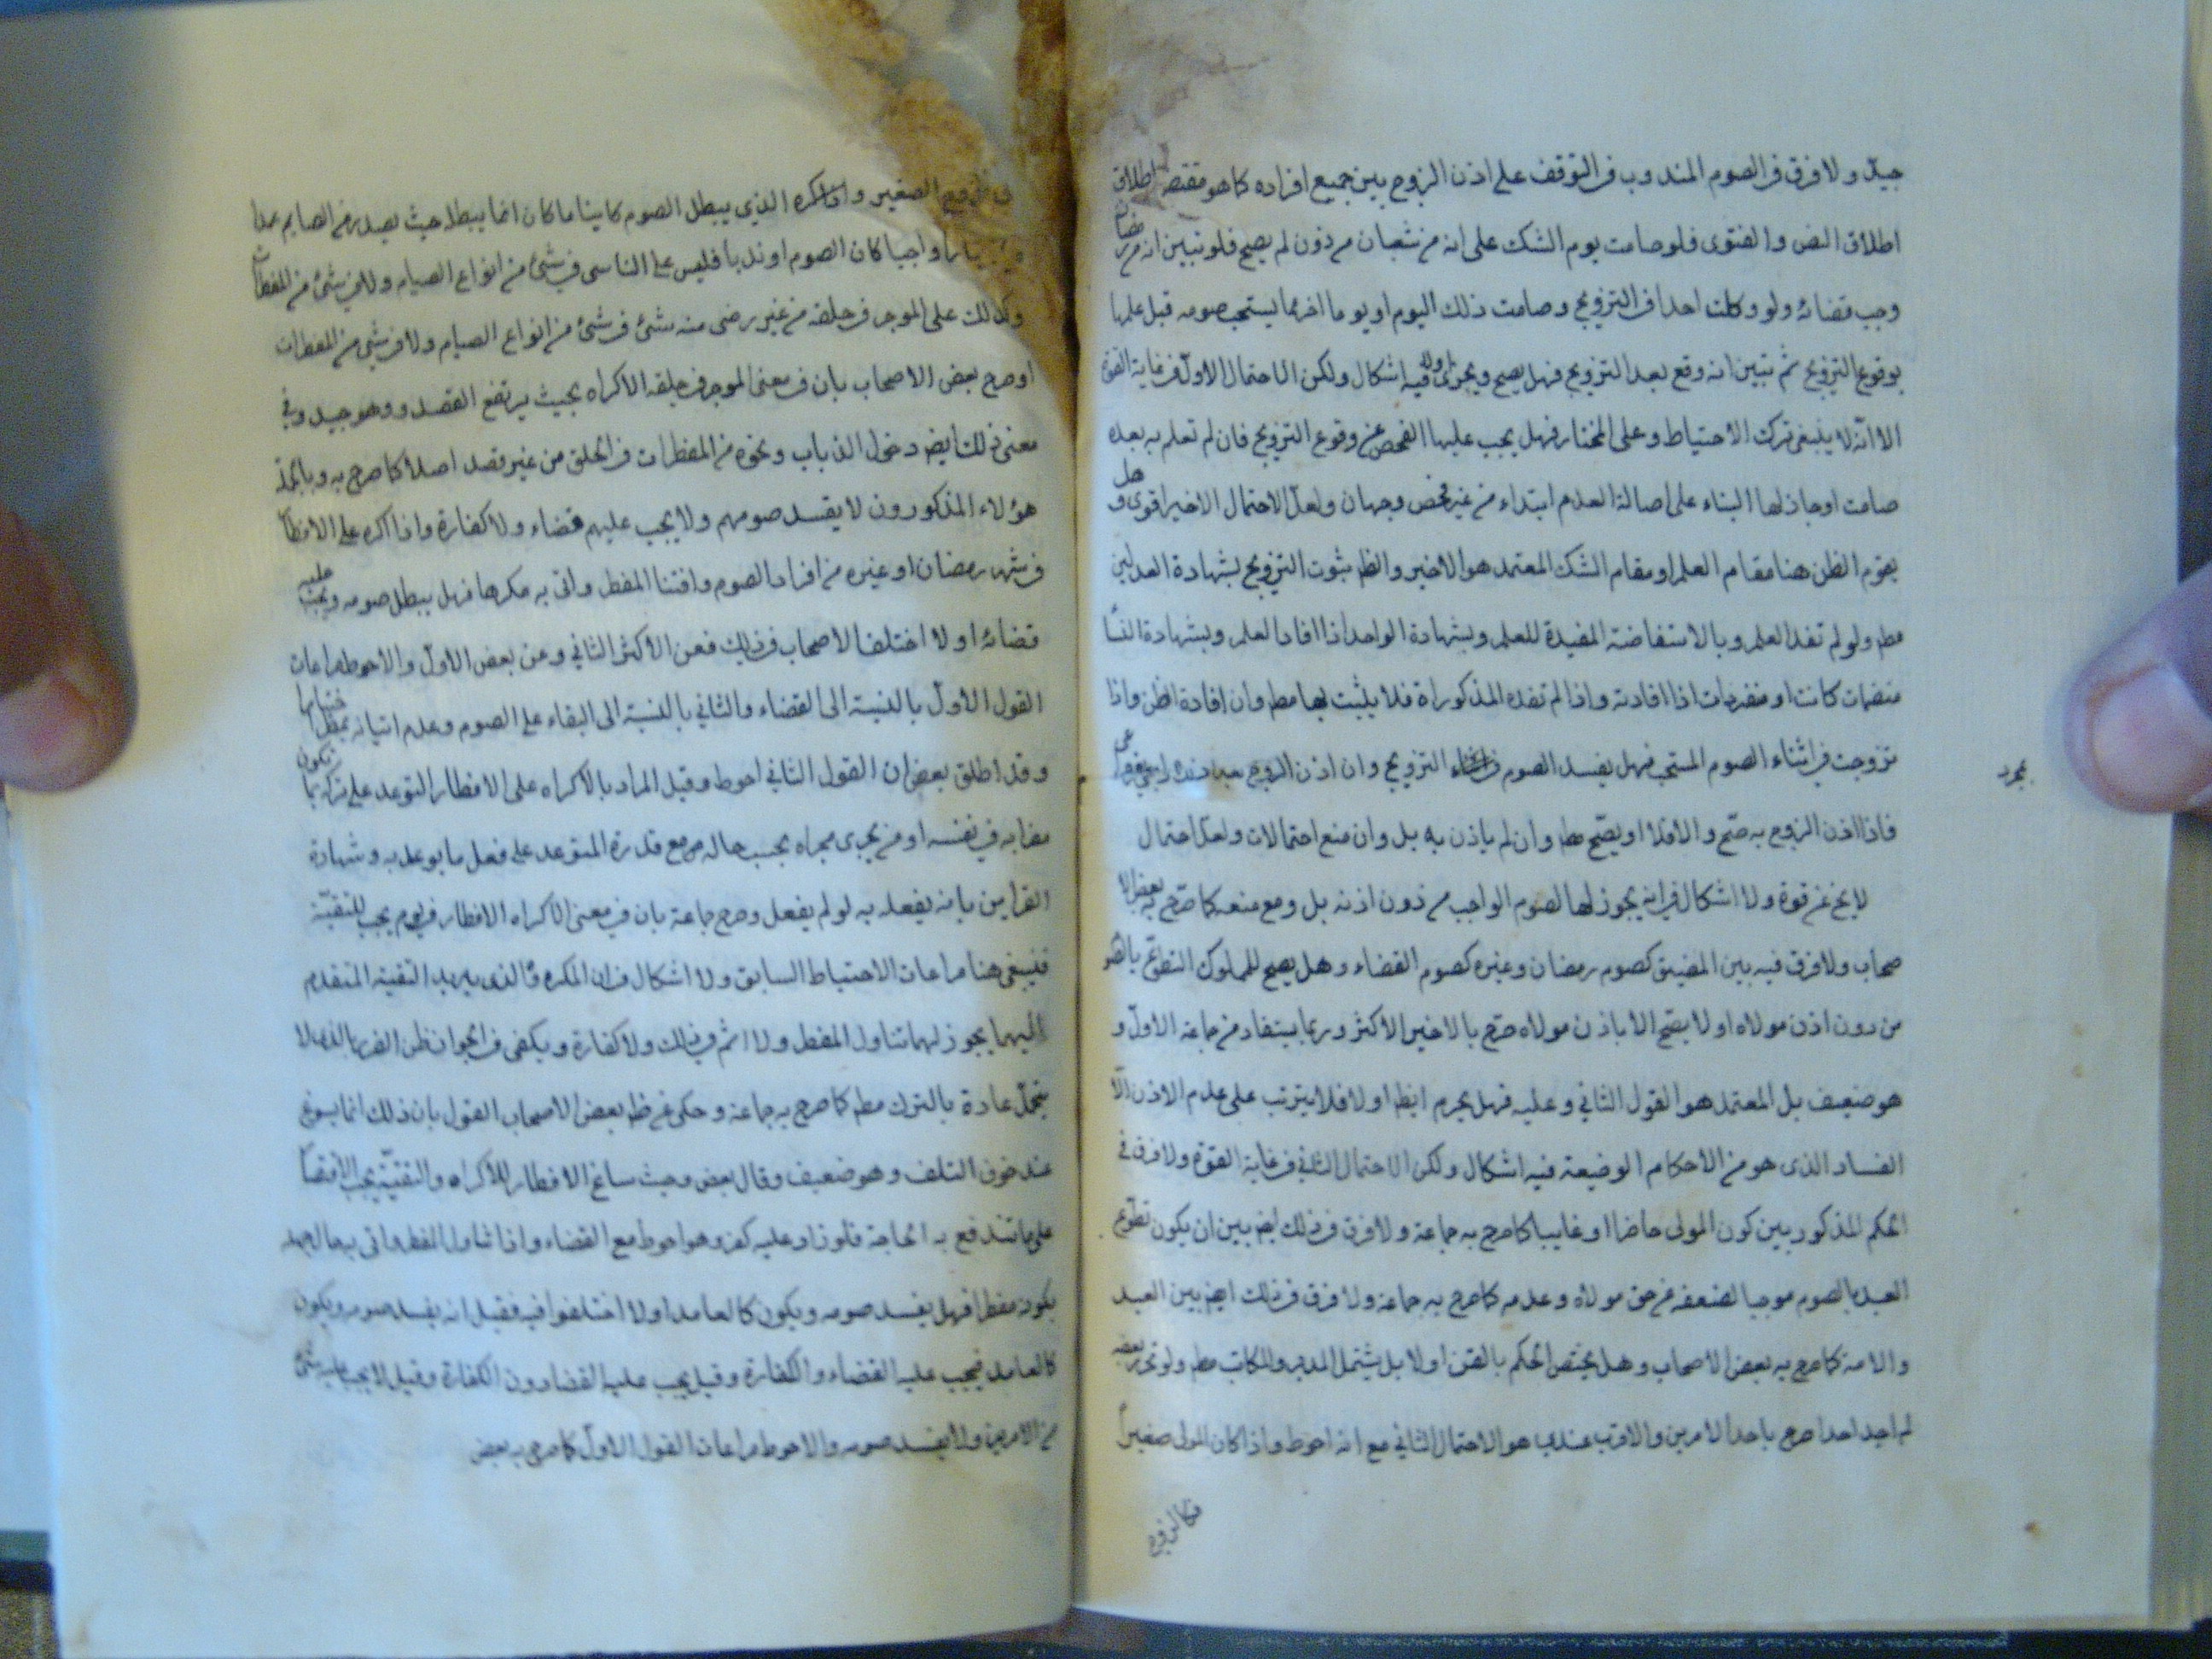 جيد ولا فرق في الصوم المندوب في التوقف على اذن الزوج بين جميع افراده كما هو مقتضى اطلاق
اطلاق النص والفتوى فلو صامت يوم الشك على انه من شعبان من دون لم يصح فلو تبين انه من رمضان
وجب قضائه ولو وكلت احدا في التزويج وصامت ذلك اليوم او يوما اخر مما يستحب صومه قبل علمها
بوقوع التزويج ثم تبين انه وقع بعد التزويج فهل يصح ويجزى اولا فيه اشكال ولكن الاحتمال الاول في غاية القوة
الا انه لا ينبغي ترك الاحتياط وعلى المختار فهل يجب عليها الفحص عن وقوع التزويج فان لم تعلم به بعده
صامت او جاز لها البناء على اصالة العدم ابتداء من غير فحص وجهان ولعل الاحتمال الاخير اقوى وهل
يقوم الظن هنا مقام العلم او مقام الشك المعتمد هو الاخير والظ ثبوت التزويج بشهادة العدلين
مطم ولو لم تفد العلم وبالاستفاضة المفيدة للعلم وبشهادة الواحد اذا افاد العلم وبشهادة النسا
منضمات كانت او منفردات اذا افادته واذا لم تفده المذكوراة فلا يثبت بها مطم وان افادة الظن واذا
تزوجت في اثناء الصوم المستحب فهل يفسد الصوم التزويج وان اذن الزوج
فاذا اذن الزوج به صح والا فلا او يصح مطم وان لم ياذن به بل وان منع احتمالات ولعل احتمال
لا يخ عن قوة ولا اشكال في انه يجوز لها الصوم الواجب من دون اذنه بل ومع منعه كما صرح به بعض الا
صحاب ولا فرق فيه بين المضيق كصوم رمضان وغيره كصوم القضاء وهل يصح للمملوك التطوع
من دون اذن مولاه او لا يصح الا باذن مولاه صرح بالاخير الاكثر وربما يستفاد من جماعة الاول و
هو ضعيف بل المعتمد هو القول الثاني وعليه فهل يحرم ايضا او لا فلا يترتب على عدم الاذن الا
الفساد الذى هو من الاحكام الوضيعة فيه اشكال ولكن الاحتمال الثاني في غاية القوة ولا فرق في
الحكم المذكور بين كون المولى حاضرا او غايبا كما صرح به جماعة ولا فرق في ذلك ايض بين ان يكون تطوع
العبد بالصوم موجبا لضعفه عن حق مولاه وعدمه كما صرح به جماعة ولا فرق في ذلك ايض بين العبد
والامة كما صرح به بعض الاصحاب وهل يختص الحكم بالقن او لا بل يشتمل المدبر والمكاتب مطم ولو تحرر بعضه
لم اجد احدا صرح باحد الامرين والاقرب عندي هو الاحتمال الثاني مع انه احوط واذا كان المولى صغيرا
بمجرد
الصغير والاكره الذي يبطل الصوم كاينا ما كان انما يبطله حيث يصدر من الصايم عمدا
واجبا كان الصوم او ندبا فليس على الناسى في شئ من انواع الصيام ولا في شئ من المفطرات
وكذلك على الموجر في حلقه من غير رضى منه شئ في شئ من انواع الصيام ولا في شئ من المفطرات
وصرح بعض الاصحاب بان في معنى الموجر في حلقه الاكراه بحيث يرتفع القصد وهو جيد وفي
معنى ذلك ايض دخول الذباب ونحوه من المفطرات في الحلق من غير قصد اصلا كما صرح به وبالجملة
هؤلاء المذكورون لا يفسد صومهم ولا يجب عليهم قضاء ولا كفارة واذا اكره على الافطار
في شهر رمضان او غيره من افراد الصوم المفطر واتى به مكرها فهل يبطل صومه ويجب عليه
قضائه او لا اختلف الاصحاب في ذلك فعن الاكثر الثاني وعن بعض الاول والاحوط مراعات
القول الاول بالنسبة الى القضاء والثاني بالنسبة الى البقاء على الصوم وعدم اتيانه بمبطل
وقد اطلق بعض ان القول الثاني احوط وقيل المراد بالاكراه على الافطار التوعد على تركه بما يكون
مضرا به في نفسه او من يجري مجراه بحسب حاله مع قدرة المتوعد على فعل ما يوعد به وشهادة
القراين بانه يفعله به لو لم يفعل وصرح جماعة بان في معنى الاكراه الافطار في يوم يجب للتقية
فينبغي هنا مراعات الاحتياط السابق ولا اشكال في ان المكره والذي يريد التقية المتقدم
اليهما يجوز لهما تناول المفطر ولا اثم في ذلك ولا كفارة ويكفى في الجواز ظن الضرر الذي لا
يتحمل عادة بالترك مطم كما صرح به جماعة وحكى عن ظ بعض الاصحاب القول بان ذلك انما يسوغ
عند خوف التلف وهو ضعيف وقال بعض وحيث ساغ الافطار للاكراه والتقية يجب الاقتصار
على ما تندفع به الحاجة فلو زاد عليه كفر وهو احوط مع القضاء واذا تناول المفطر
يكون مفطرا فهل يفسد صومه ويكون كالعامد او لا اختلفوا فيه فقيل انه يفسد صومه ويكون
كالعامد فيجب عليه القضاء والكفارة وقيل يجب عليه القضاء دون الكفارة وقيل لا يجب عليه شئ
من الامرين ولا يفسد صومه والاحوط مراعات القول الاول كما صرح به بعض